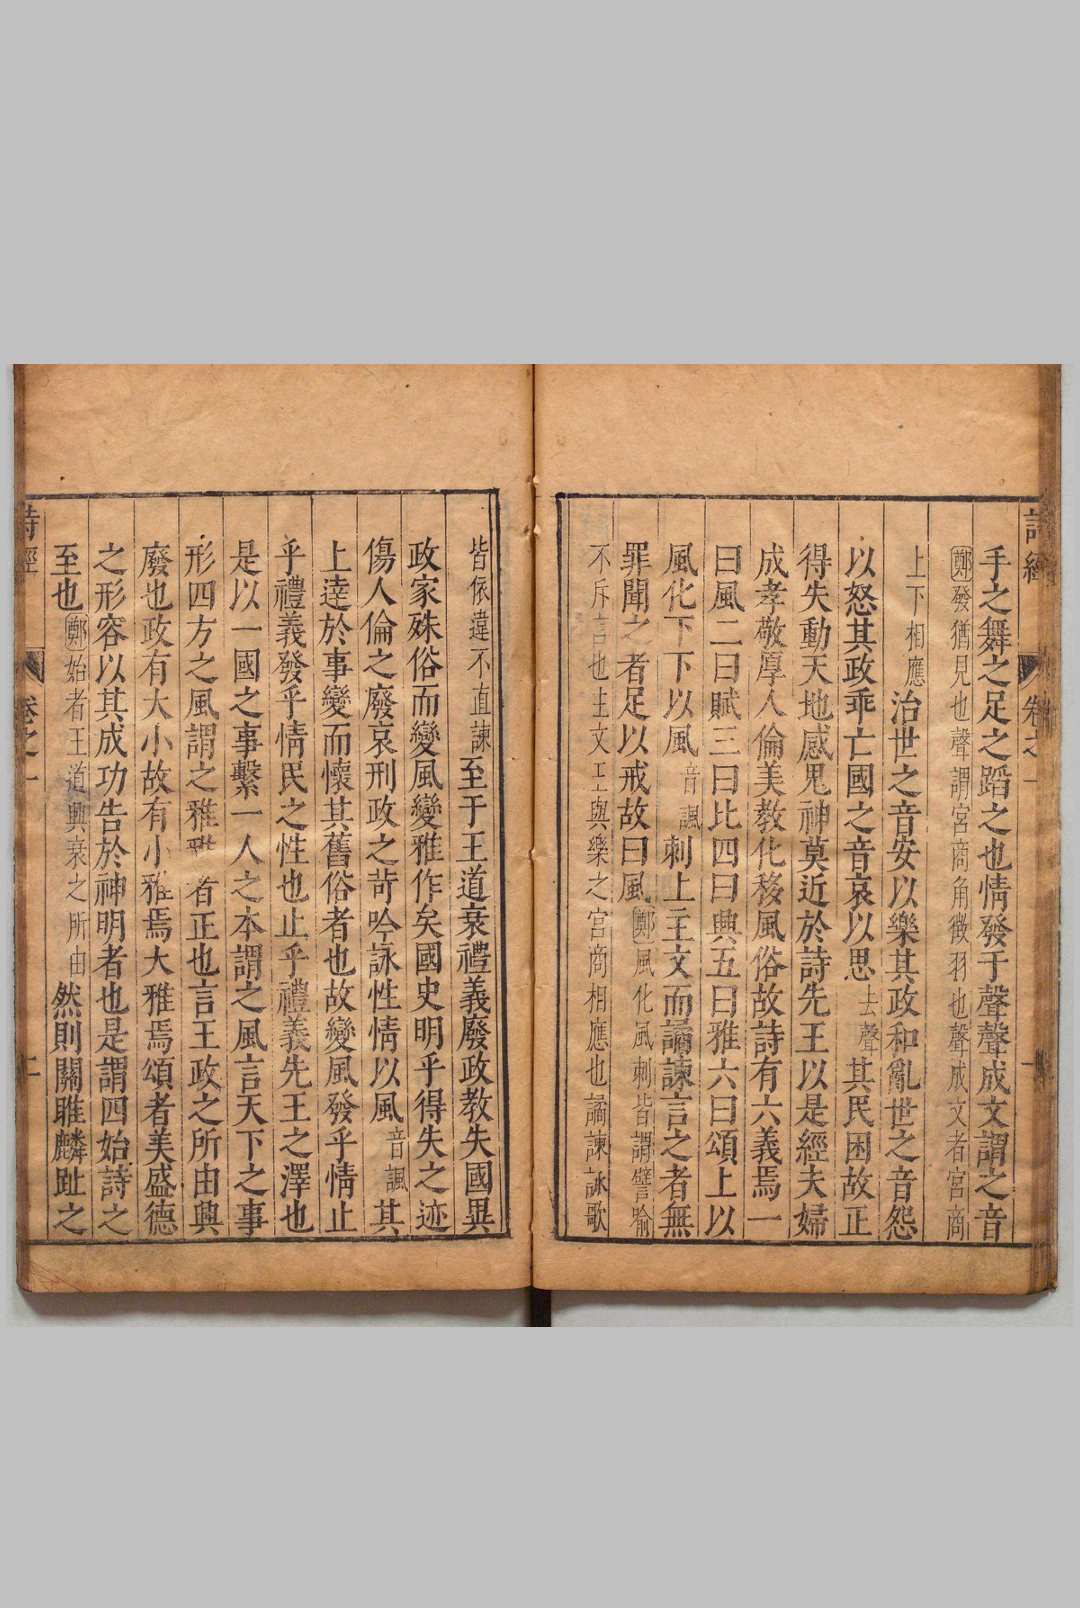 詩經 卷之一
手之舞之足之蹈之也情發于聲聲成文謂之音
鄭發猶見也聲謂宮商角徵羽也聲成文者宮商
上下相應治世之音安以樂其政和亂世之音怨
以怒其政乖亡國之音哀以思去聲其民困故正
得失動天地感鬼神莫近於詩先王以是經夫婦
成孝敬厚人倫美教化移風俗故詩有六義焉一
曰風二曰賦三曰比四曰興五曰雅六曰頌上以
風化下下以風音諷刺上主文而譎諫言之者無
罪聞之者足以戒故曰風鄭風化風刺皆謂譬喻
不斥言也主文主與樂之宮商相應也譎諫詠歌
皆依違不直諫至于王道衰禮義廢政教失國異
政家殊俗而變風變雅作矣國史明乎得失之迹
傷人倫之廢哀刑政之苛吟詠性情以風音諷其
上達於事變而懷其舊俗者也故變風發乎情止
乎禮義發乎情民之性也止乎禮義先王之澤也
是以一國之事繫一人之本謂之風言天下之事
形四方之風謂之雅雅者正也言王政之所由興
廢也政有大小故有小雅焉大雅焉頌者美盛德
之形容以其成功告於神明者也是謂四始詩之
至也鄭始者王道興衰之所由然則關雎麟趾之
詩經 卷之一 二